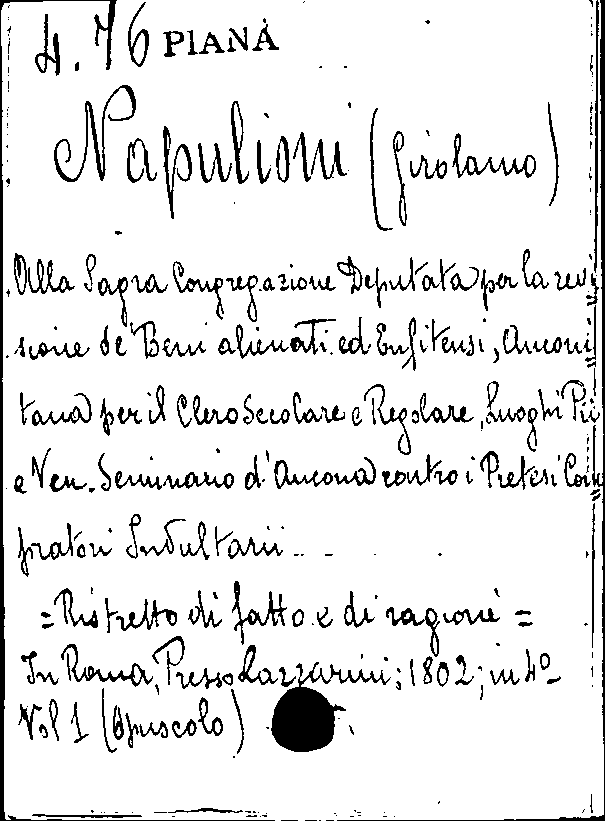 4.76 PIANA
Napulioni (Girolamo)
Alla Sagra Congregazione Deputata per la revi=
sione de' Beni alienati ed Enfitensi, Anconi=
tana per il Clero Secolare e Regolare, Luoghi Pii
e Ven. Seminario d'Ancona contro i Pretesi Com=
pratori Indultarii...
=Ristretto di fatto e di ragione=
In Roma, Presso Lazzarini; 1802; in 4º
Vol 1 (Opuscolo)